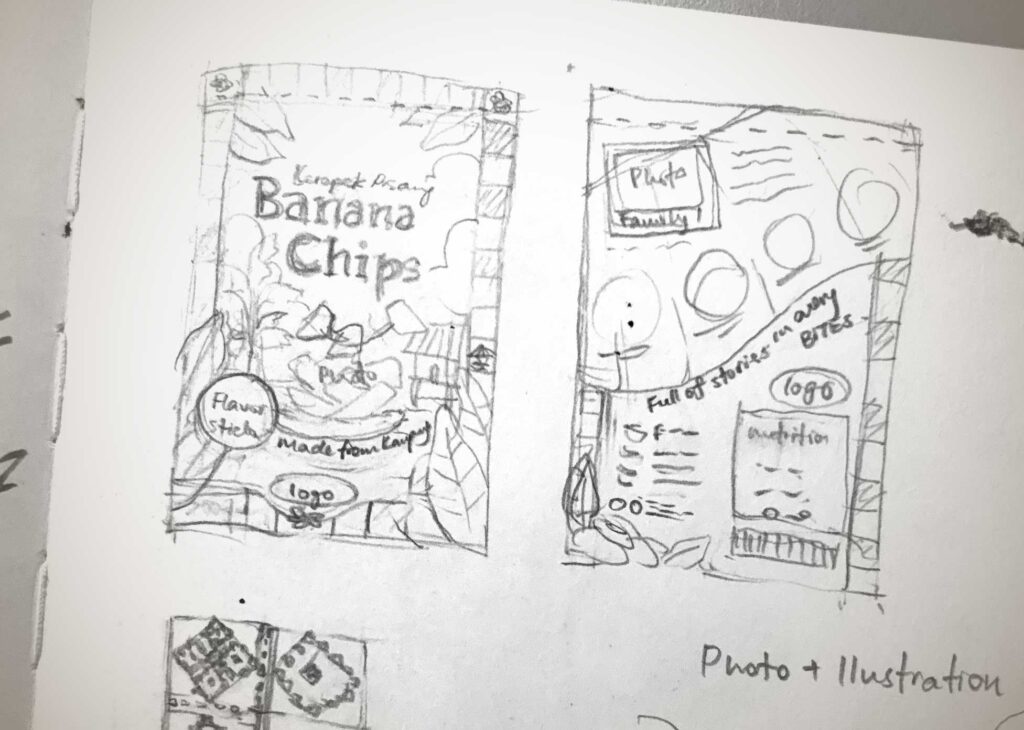 Keropok Pisang
Banana
Chips
Photo
Flavor
sticker
made from Kampung
logo
Photo
Family!
Full of stories in every
BITES
logo
nutrition
Photo + Illustration